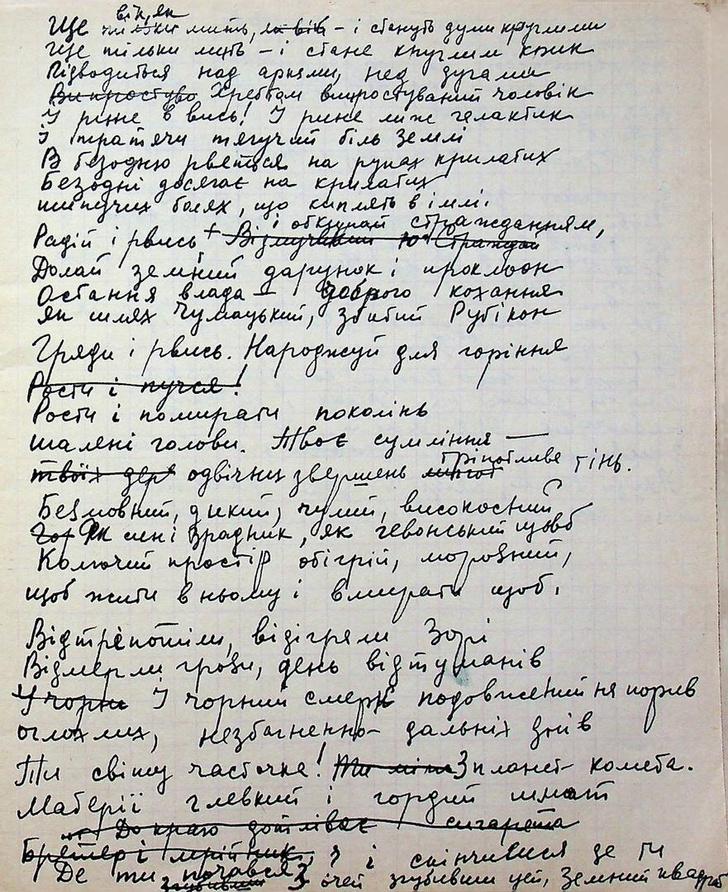 вік, як
Ще тільки мить, як вів – і стануть думи круглими
Ще тільки мить – і стане круглим крик
Підводиться над арками, над дугами
Випростово Хребтом випростуваний чоловік
І рине ввись! І рине між галактик
І тратячи тягучий біль землі
В безодню рветься на руках крилатих
Безодні досягає на крилатих
шиплячих болях, що киплять в імлі.
і обкупай стражданням,
Радій і рвись + Відмучивши Страждай
Долай земний дарунок і проклон
Остання влада – доброго кохання
як шлях Чумацький, збитий Рубікон
Гряди і рвись. Народжуй для горіння
Рости і пучся!
Рости і помирати поколінь
шалені голови. Твоє сумління —
твоїх дер одвічних звершень тріпотливе тінь.
Безмовний, дикий, чулий, високосний
Гор Як сині зрадник, як гевонський щовб
Колючий простір обігрій, морозний,
щоб жити в ньому і вмирати щоб.
Відтріпотіли, відіграли Зорі
Відмерли грози, день відтуманів
У чорни І чорний смерк подовжений на порив
оглохлих, незбагненно-дальніх днів
Ти світу часточка! Ти міні З планет – комета.
Матерії глевкий і гордий шмат
До краю дотліває сигарета
Бретер і мрійник. З і скінчився де ти
Де ти почався З очей згубивши цей, Земний квадрат
згубивши